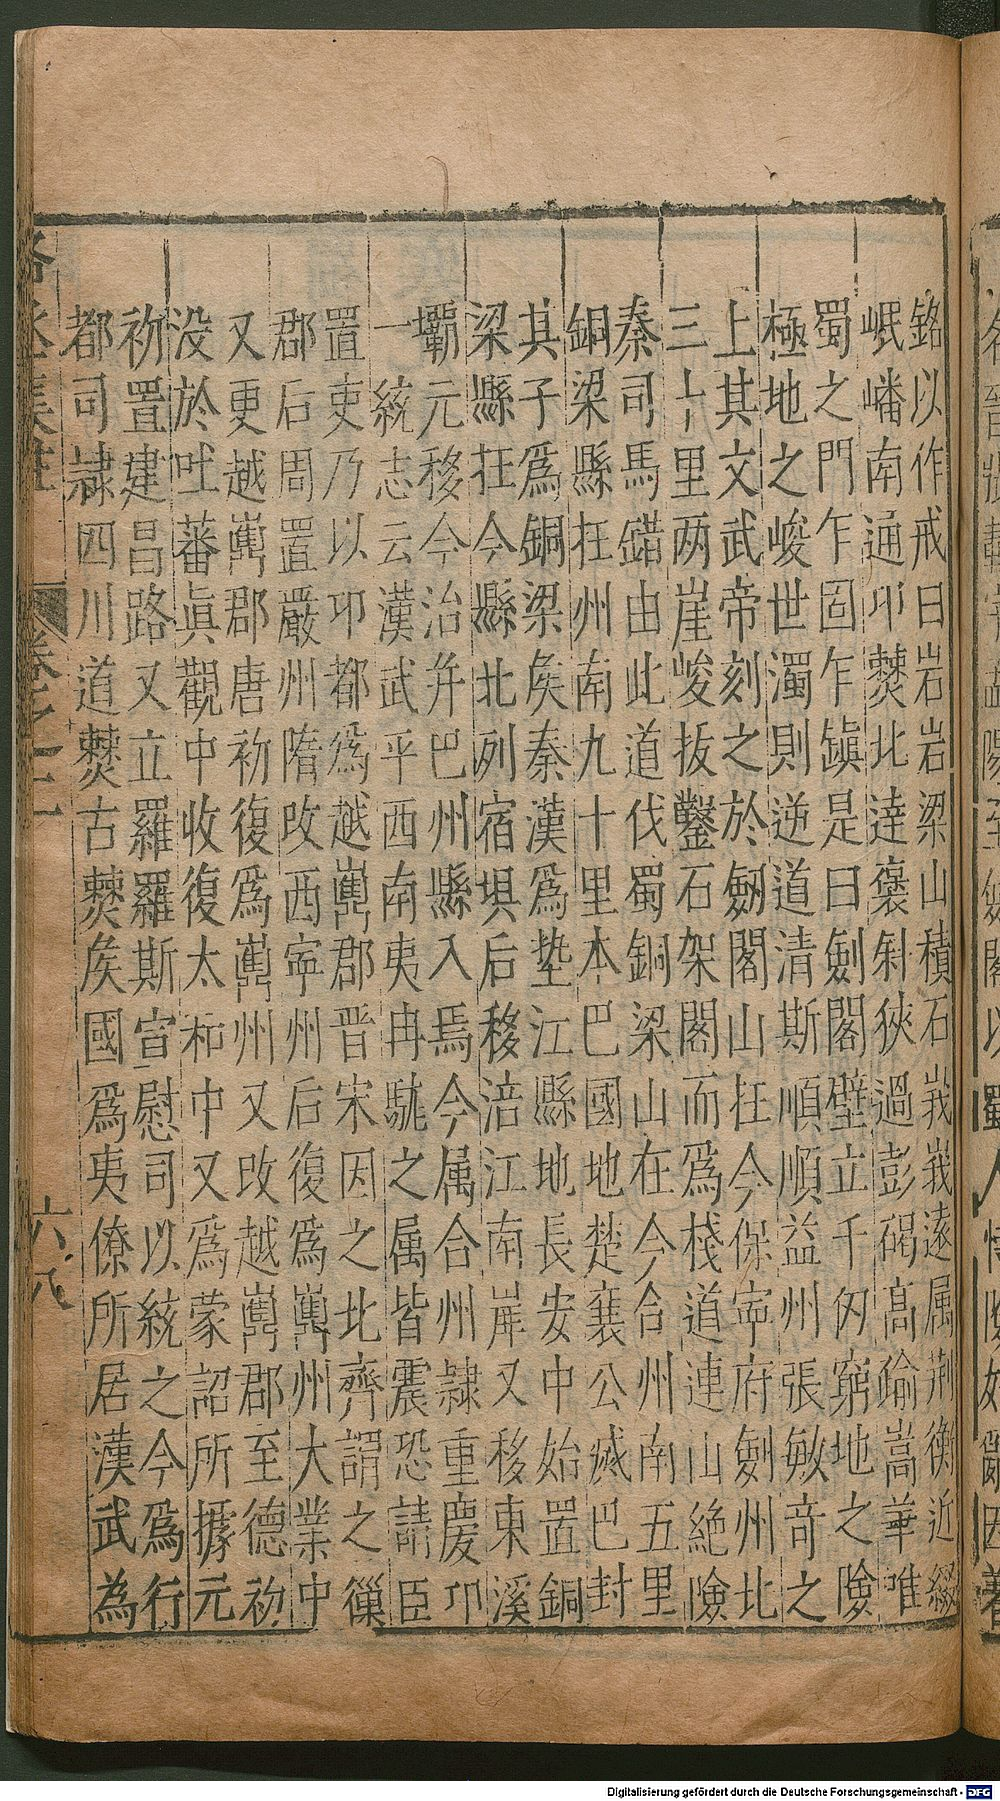 銘以作戒曰岩岩梁山積石峩峩遠属荆衡近綴
岷嶓南通卭僰北逹褒斜狹過彭碣高踰嵩華唯
蜀之門乍固乍鎭是曰劍閣壁立千仞窮地之險
極地之峻世濁則逆道清斯順順益州張敏竒之
上其文武帝刻之於劒閣山在今保寧府劍州北
三十里两崖峻拔鑿石架閣而爲棧道連山絶險
秦司馬錯由此道伐蜀銅梁山在今合州南五里
銅梁縣在州南九十里本巴國地楚襄公滅巴封
其子爲銅梁矦秦漢爲墊江縣地長安中始置銅
梁縣在今縣北列宿垻后移涪江南岸又移東溪
壩元移今治并巴州縣入焉今属合州隷重慶卭
一統志云漢武平西南夷冉駹之属皆震恐請臣
置吏乃以卭都爲越嶲郡晋宋因之北齊謂之獠
郡后周置嚴州隋改西寧州后復爲嶲州大業中
又更越嶲郡唐初復爲嶲州又改越嶲郡至德初
没於吐蕃眞觀中收復太和中又爲蒙詔所據元
初置建昌路又立羅羅斯宣慰司以統之今爲行
都司隷四川道僰古僰矦國爲夷僚所居漢武為
卷之二
六八
Digitalisierung gefördert durch die Deutsche Forschungsgemeinschaft - DFG